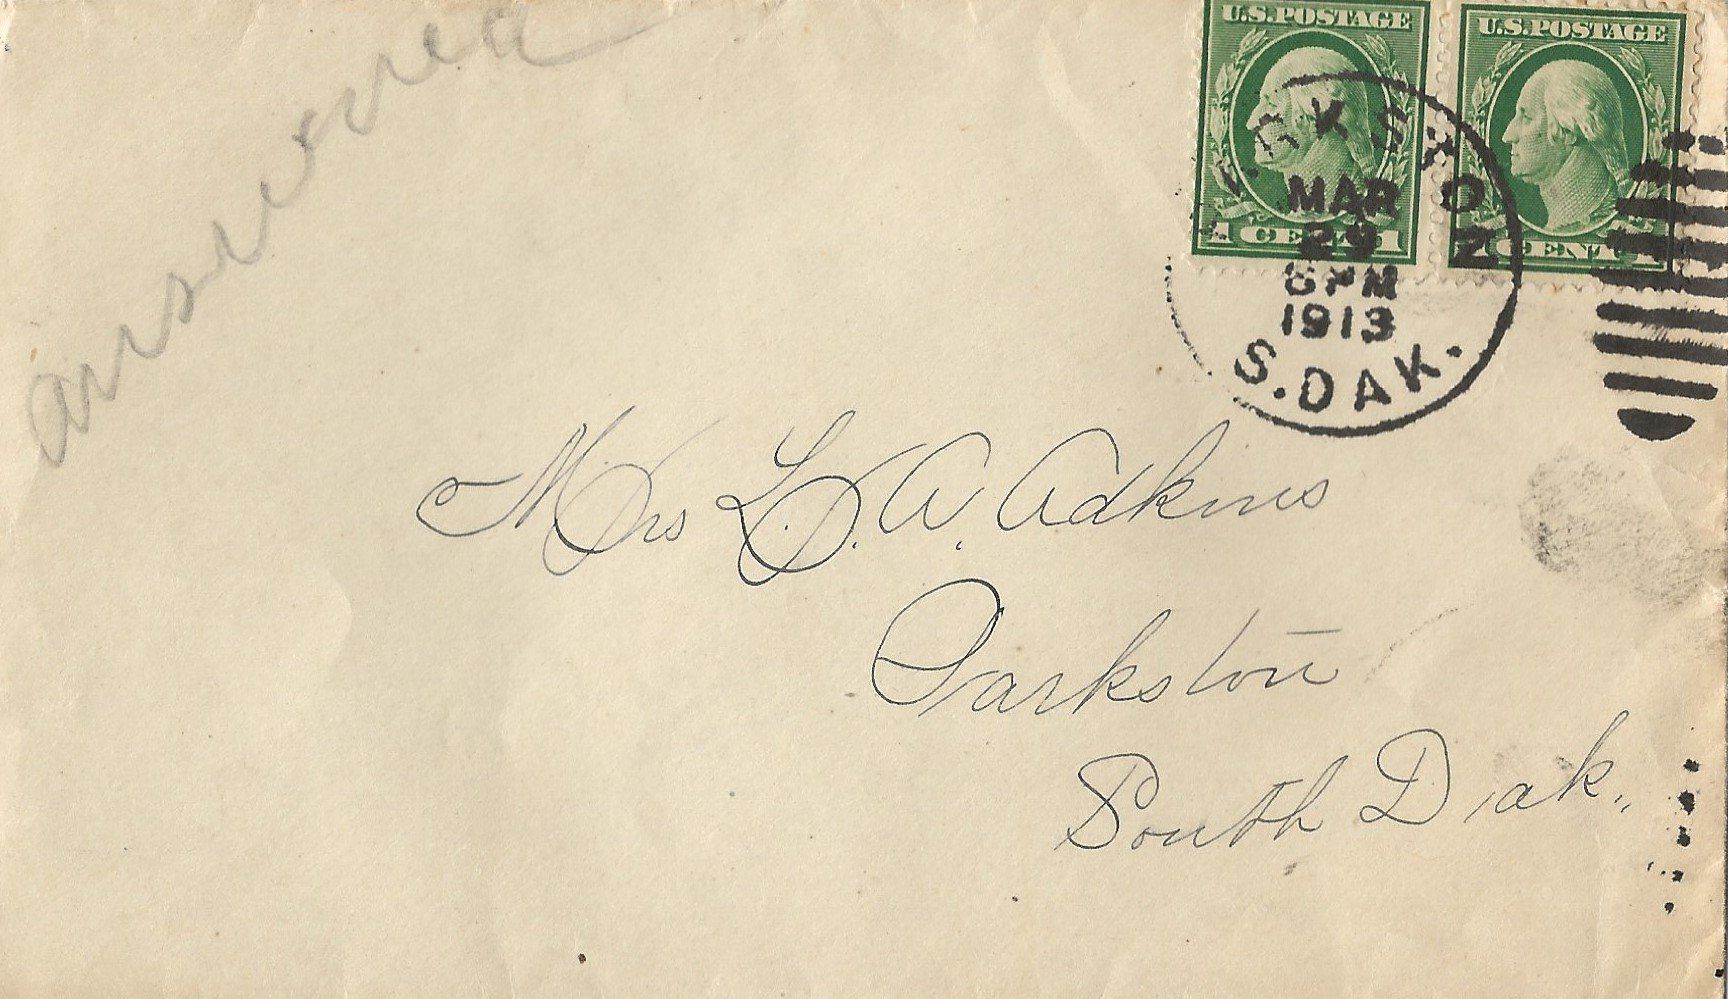 answered
U.S. POSTAGE U.S. POSTAGE
PARKSTON
MAR
29
6 PM
1913
S. DAK.
1 CENT 1 1 CENT 1
Mrs L. A. Adkins
Parkston
South Dak.